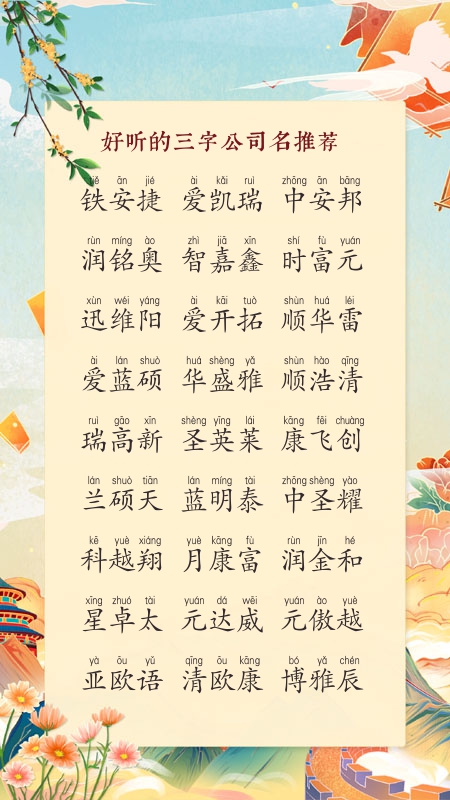 好听的三字公司名推荐
tiě ān jié ài kǎi ruì zhōng ān bāng
铁安捷 爱凯瑞 中安邦
rùn míng ào zhì jiā xīn shí fù yuán
润铭奥 智嘉鑫 时富元
xùn wéi yáng ài kāi tuò shùn huá léi
迅维阳 爱开拓 顺华雷
ài lán shuò huá shèng yǎ shùn hào qīng
爱蓝硕 华盛雅 顺浩清
ruì gāo xīn shèng yīng lái kāng fēi chuàng
瑞高新 圣英莱 康飞创
lán shuò tiān lán míng tài zhōng shèng yào
兰硕天 蓝明泰 中圣耀
kē yuè xiáng yuè kāng fù rùn jīn hé
科越翔 月康富 润金和
xīng zhuó tài yuán dá wēi yuán ào yuè
星卓太 元达威 元傲越
yà ōu yǔ qīng ōu kāng bó yǎ chén
亚欧语 清欧康 博雅辰